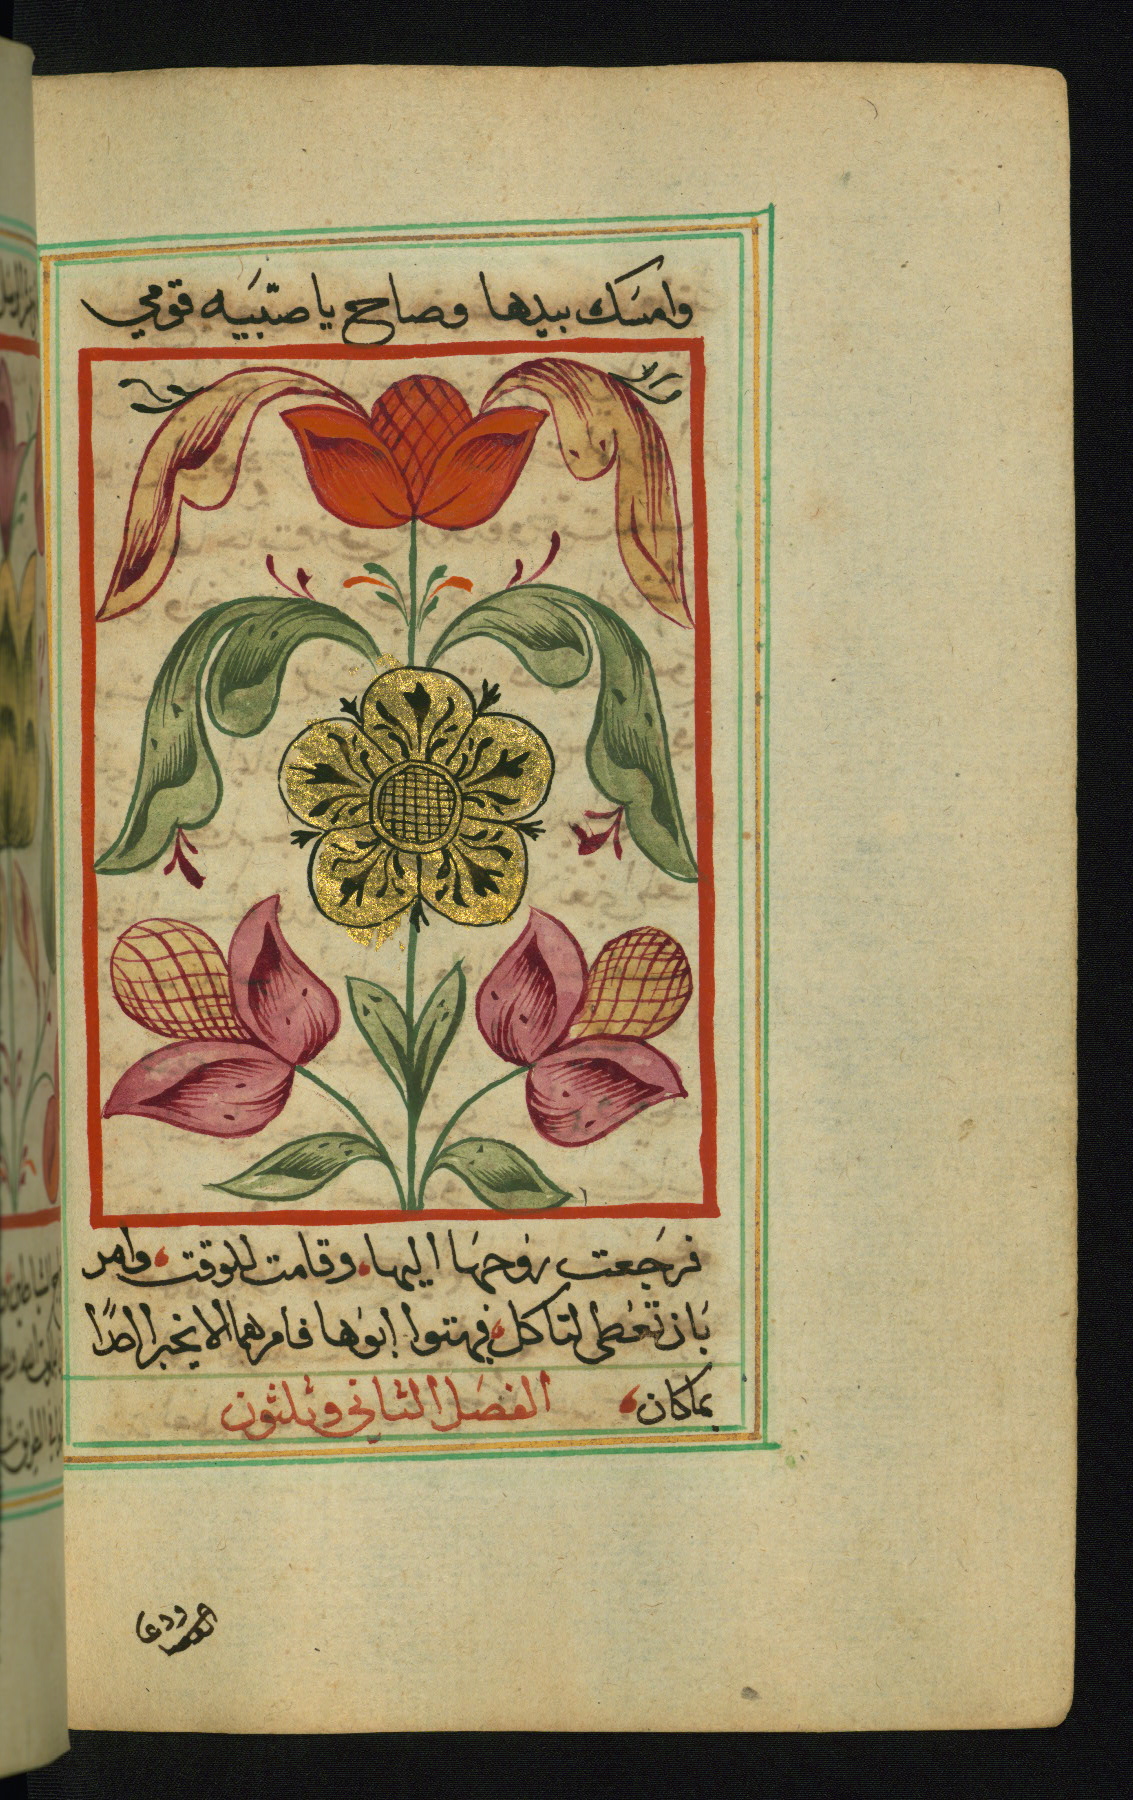 وامسَك بيدها وصاح يا صَبيَه قومي
فرجَعت روُحهَا اليها، وقامت للوقت، وامر
بَان تعُطى لتاكل، فبهتوا ابوَها فامرهما الا يخبرا احدًا
بما كان، الفصَل الثاني وثلثون